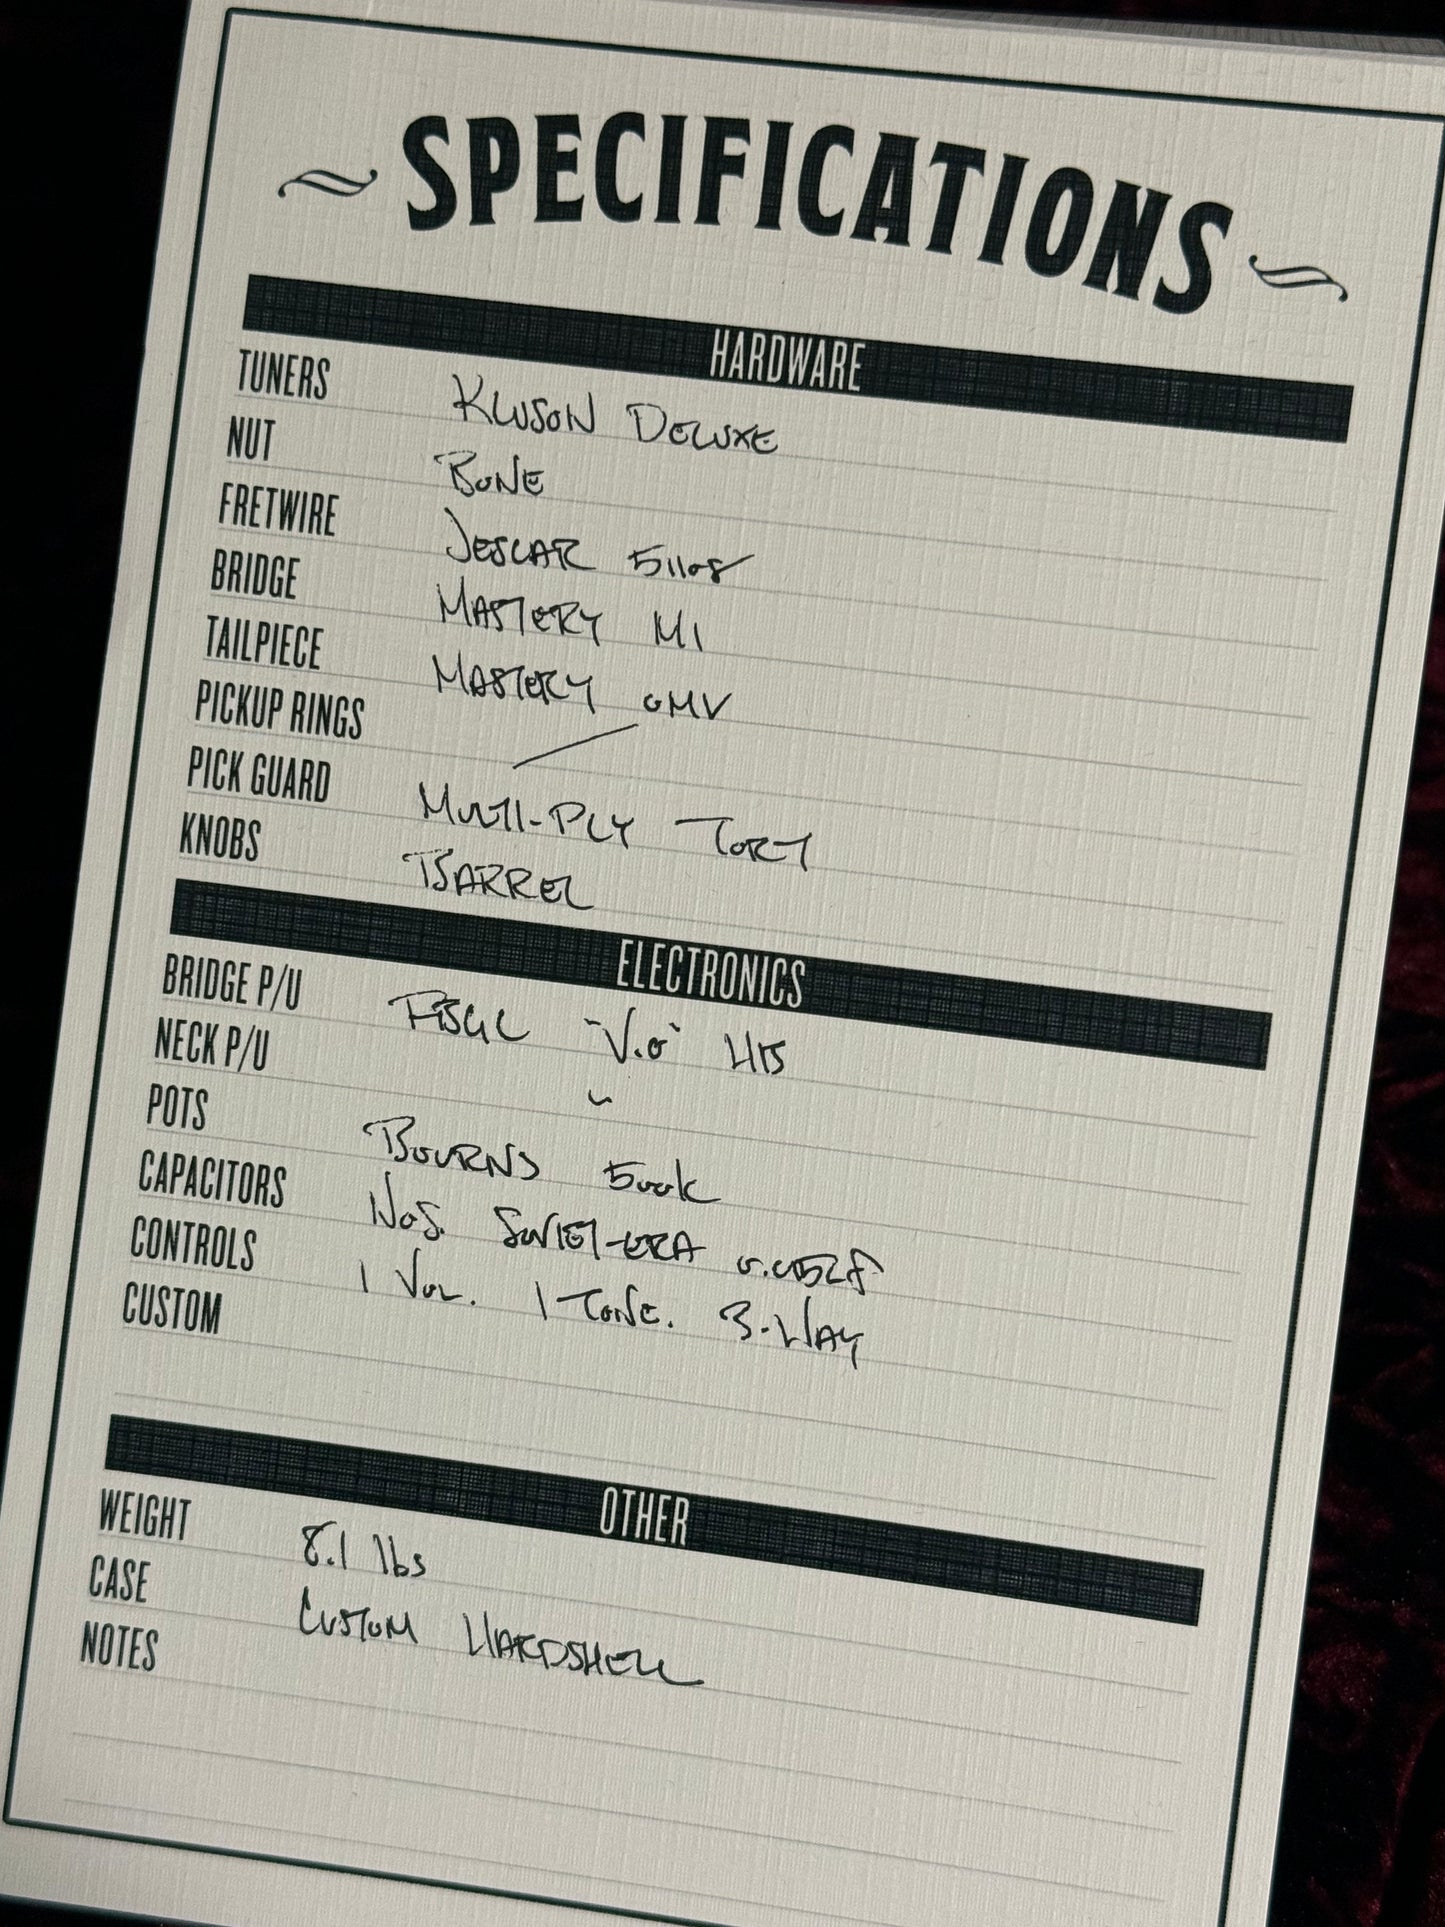 SPECIFICATIONS
HARDWARE
TUNERS KLUSON DELUXE
NUT BONE
FRETWIRE JESCAR 51108
BRIDGE MASTERY M1
TAILPIECE MASTERY OMV
PICKUP RINGS /
PICK GUARD MULTI-PLY TORT
KNOBS BARREL
ELECTRONICS
BRIDGE P/U "V.O" HB
NECK P/U "
POTS BOURNS 500K
CAPACITORS NOS. SOVIET-ERA
CONTROLS 1 VOL. 1 TONE. 3-WAY
CUSTOM
OTHER
WEIGHT 8.1 lbs
CASE CUSTOM HARDSHELL
NOTES